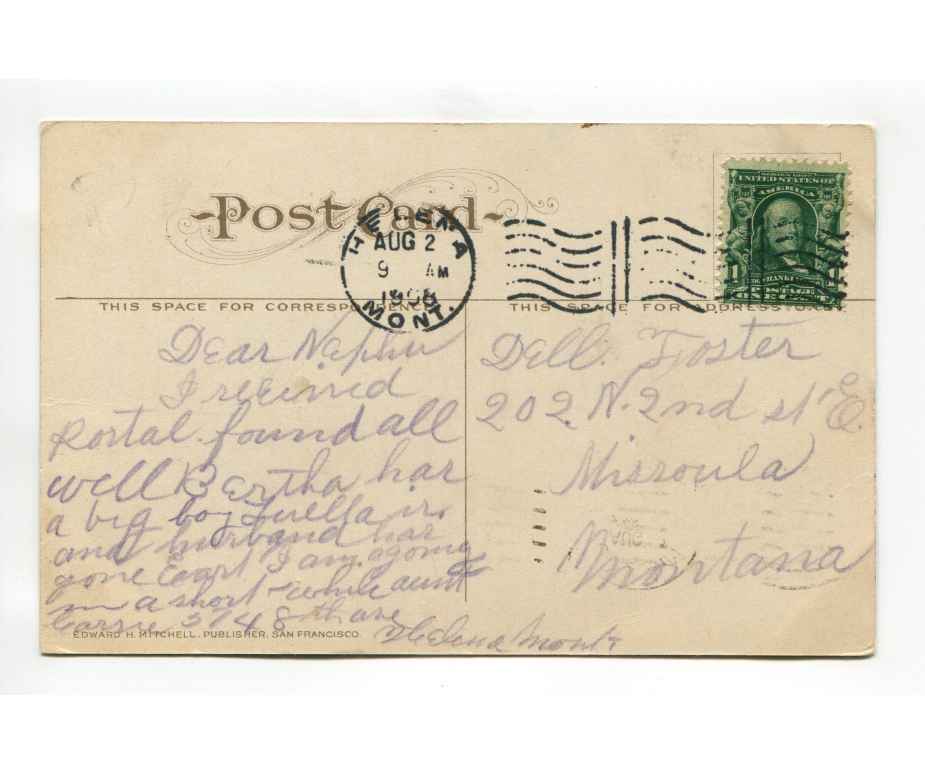 Post Card
HELENA
AUG 2
9 AM
1908
MONT.
UNITED STATES OF
AMERICA
1 1
FRANKLIN
POSTAGE
ONE CENT
THIS SPACE FOR CORRESPONDENCE
THIS SPACE FOR ADDRESS ONLY
Dear Nephu
I received
Postal found all
well Bertha has
a big boy Luella is
and husband has
gone East I am agoing
in a short while aunt
Carrie 514 8th ave
Helena Mont
Dell. Foster
202 N. 2nd st E.
Missoula
Montana
EDWARD H. MITCHELL, PUBLISHER, SAN FRANCISCO.